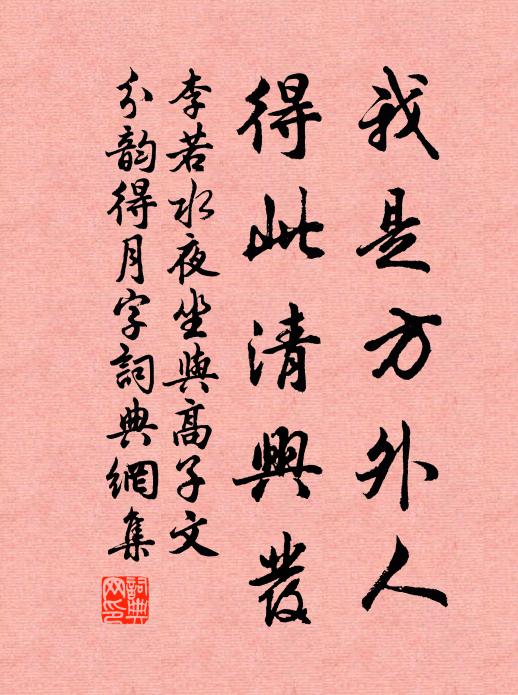 我是方外人
得此清興發
李若水夜坐與高子文
分韵得月字詞典網集
詞典網印